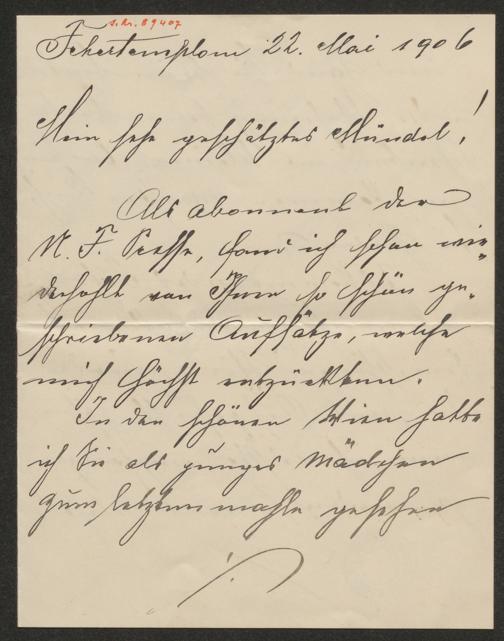 s. Nr. 89407
Fehertemplom 22. Mai 1906
Mein sehr geschätztes Mündel!
Als abonnent der
N. F. Presse, fand ich schon wie-
derhohlt von Ihnen so schön ge-
schriebenen Aufsätze, welche
mich höchst entzückten.
In den schönen Wien hatte
ich Sie als junges Mädchen
zum letztenmahle gesehen